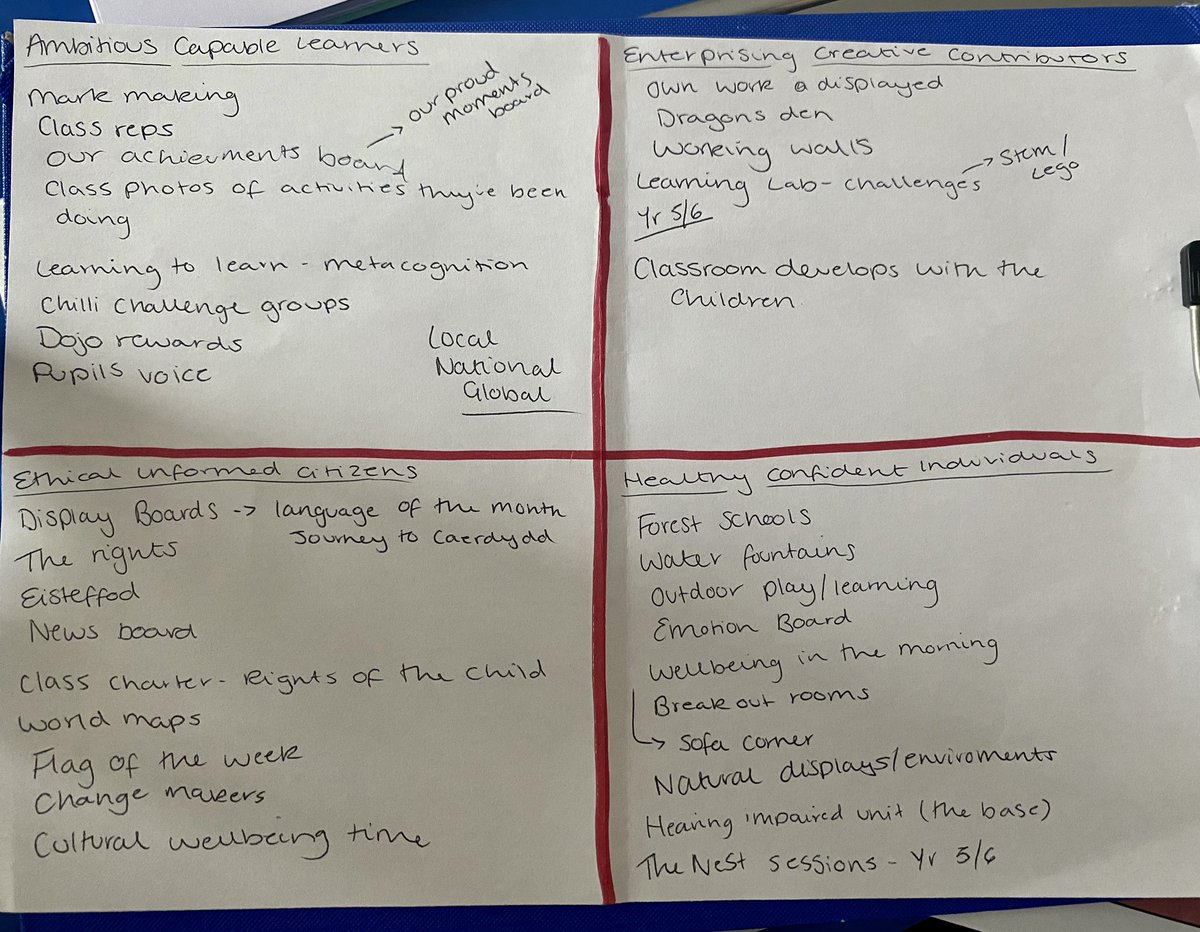 Ambitious Capable Learners
Mark making
Class reps
Our achievments board
our proud
moments
board
Class photos of activities they've been
doing
Learning to learn - metacognition
Chilli challenge groups
Dojo rewards
Pupils voice
Local
National
Global
Enterprising Creative Contributors
Own work displayed
Dragons den
Working walls
Learning Lab - challenges
Stem/
Lego
Yr 5/6
Classroom develops with the
children
Ethical informed citizens
Display Boards -> language of the month
Journey to Caerdydd
The rights
Eisteffod
News board
Class charter - Rights of the child
World maps
Flag of the week
Change makers
Cultural wellbeing time
Healthy Confident Individuals
Forest Schools
Water fountains
Outdoor play/learning
Emotion Board
Wellbeing in the morning
Break out rooms
Sofa corner
Natural displays/enviroments
Hearing impaired unit (the base)
The Nest sessions - Yr 5/6